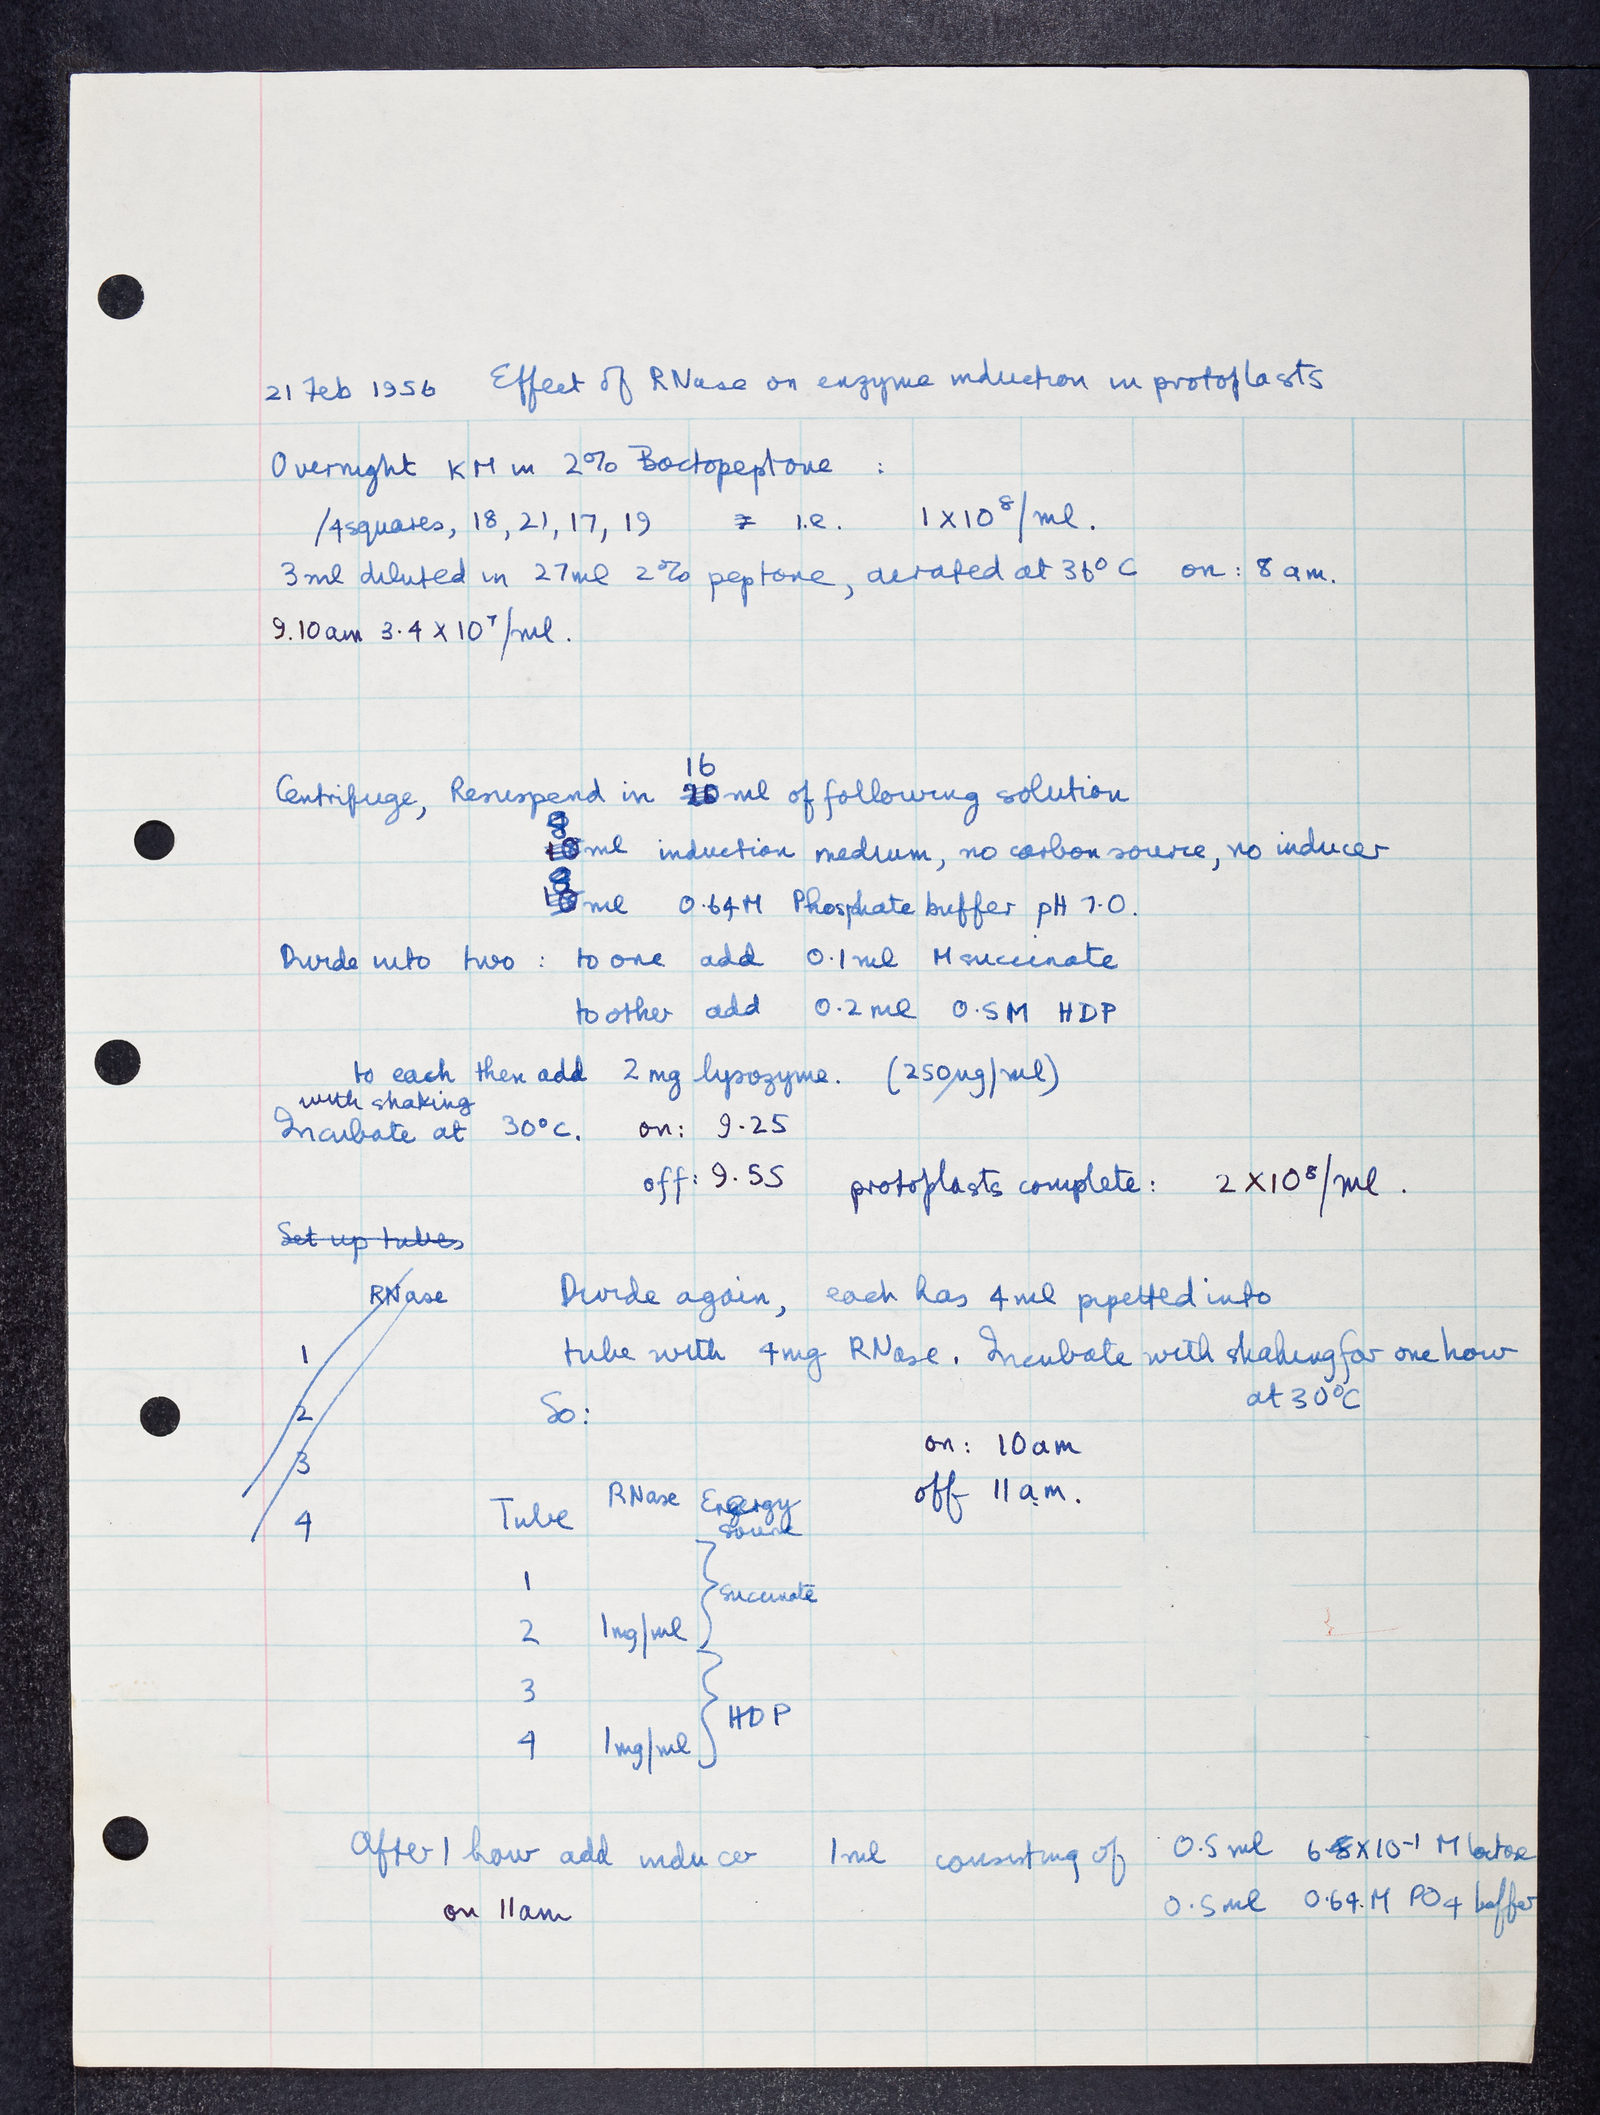 21 Feb 1956 Effect of RNase on enzyme induction in protoplasts
Overnight KM in 2% Bactopeptone :
/4squares, 18, 21, 17, 19 i.e. 1 x 10⁸/ml.
3ml diluted in 27ml 2% peptone, aerated at 36°C on: 8am.
9.10am 3.4 x 10⁷/ml.
16
Centrifuge, Resuspend in 20ml of following solution
8
10ml induction medium, no carbon source, no inducer
8
10ml 0.64M Phosphate buffer pH 7.0.
Divide into two : to one add 0.1ml M succinate
to other add 0.2ml 0.5M HDP
to each then add 2mg lysozyme. (250µg/ml)
with shaking
Incubate at 30°C. on: 9.25
off: 9.55 protoplasts complete: 2 x 10⁸/ml.
Set up tubes
RNase Divide again, each has 4ml pipetted into
1 tube with 4mg RNase. Incubate with shaking for one hour
at 30°C
2 So:
on: 10am
3
off 11am.
RNase Energy
4 Tube source
1 succinate
2 1mg/ml
3
HDP
4 1mg/ml
After 1 hour add inducer 1ml consisting of 0.5ml x10⁻¹ M lactose
on 11am 0.5ml 0.64M PO4 buffer